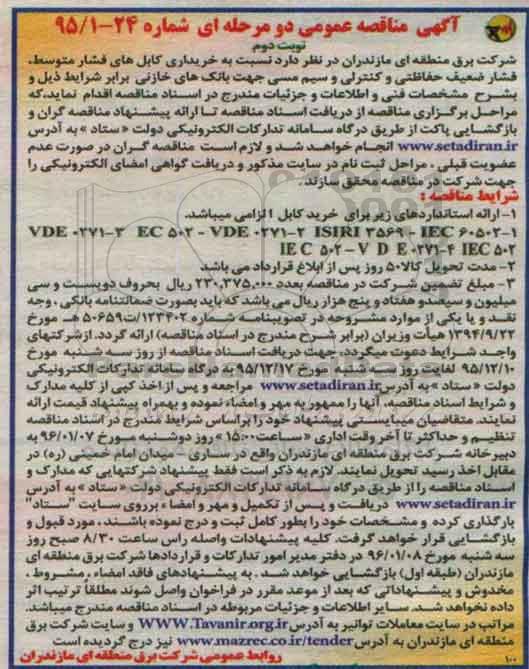 آگهی مناقصه عمومی دو مرحله ای شماره ۲۴-۹۵/۱
نوبت دوم
شرکت برق منطقه ای مازندران در نظر دارد نسبت به خریداری کابل های فشار متوسط،
فشار ضعیف حفاظتی و کنترلی و سیم مسی جهت بانک های خازنی برابر شرایط ذیل و
بشرح مشخصات فنی و اطلاعات و جزئیات مندرج در اسناد مناقصه اقدام نماید،که
مراحل برگزاری مناقصه از دریافت اسناد مناقصه تا ارائه پیشنهاد مناقصه گران و
بازگشایی پاکت از طریق درگاه سامانه تدارکات الکترونیکی دولت « ستاد » به آدرس
www.setadiran.ir انجام خواهد شد و لازم است مناقصه گران در صورت عدم
عضویت قبلی ، مراحل ثبت نام در سایت مذکور و دریافت گواهی امضای الکترونیکی را
جهت شرکت در مناقصه محقق سازند.
شرایط مناقصه :
۱- ارائه استانداردهای زیر برای خرید کابل الزامی میباشد.
VDE ۰۲۷۱-۳ EC ۵۰۲ - VDE ۰۲۷۱-۲ ISIRI ۳۵۶۹ - IEC ۶۰۵۰۲-۱
IEC ۵۰۲-V D E ۰۲۷۱-۴ IEC ۵۰۲
۲- مدت تحویل کالا۵۰ روز پس از ابلاغ قرارداد می باشد
۳- مبلغ تضمین شرکت در مناقصه بعدد ۲۳۰,۳۷۵,۰۰۰ ریال بحروف دویست و سی
میلیون و سیصدو هفتاد و پنج هزار ریال می باشد که باید بصورت ضمانتنامه بانکی ، وجه
نقد و یا یکی از موارد مشروحه در تصویبنامه شماره ۱۲۳۴۰۲/ت۵۰۶۵۹ هـ مورخ
۱۳۹۴/۹/۲۲ هیأت وزیران (برابر شرح مندرج در اسناد مناقصه) ارائه گردد. ازشرکتهای
واجد شرایط دعوت میگردد، جهت دریافت اسناد مناقصه از روز سه شنبه مورخ
۹۵/۱۲/۱۰ لغایت روز سه شنبه مورخ ۹۵/۱۲/۱۷ به درگاه سامانه تدارکات الکترونیکی
دولت « ستاد »به آدرس www.setadiran.ir مراجعه و پس از اخذ کپی از کلیه مدارک
و شرایط اسناد مناقصه، آنها را ممهور به مهر و امضاء نموده و بهمراه پیشنهاد قیمت ارائه
نمایند. متقاضیان میبایستی پیشنهاد خود را براساس شرایط مندرج در اسناد مناقصه
تنظیم و حداکثر تا آخر وقت اداری « ساعت۱۵:۰۰ » روز دوشنبه مورخ ۹۶/۰۱/۰۷ به
دبیرخانه شرکت برق منطقه ای مازندران واقع در ساری - میدان امام خمینی (ره) در
مقابل اخذ رسید تحویل نمایند. لازم به ذکر است فقط پیشنهاد شرکتهایی که مدارک و
اسناد مناقصه را از طریق درگاه سامانه تدارکات الکترونیکی دولت « ستاد » به آدرس
www.setadiran.ir دریافت و پس از تکمیل و مهر و امضاء برروی سایت "ستاد"
بارگذاری کرده و مشخصات خود را بطور کامل ثبت و درج نموده باشند ، مورد قبول و
بازگشایی قرار خواهد گرفت. کلیه پیشنهادات واصله راس ساعت ۸/۳۰ صبح روز
سه شنبه مورخ ۹۶/۰۱/۰۸ در دفتر مدیر امور تدارکات و قراردادها شرکت برق منطقه ای
مازندران (طبقه اول) بازگشایی خواهد شد . به پیشنهادهای فاقد امضاء ، مشروط ،
مخدوش و پیشنهاداتی که بعد از موعد مقرر در فراخوان واصل شوند مطلقا ترتیب اثر
داده نخواهد شد. سایر اطلاعات و جزئیات مربوطه در اسناد مناقصه مندرج میباشد.
مراتب در سایت معاملات توانیر به آدرس WWW.Tavanir.org.ir و سایت شرکت برق
منطقه ای مازندران به آدرس www.mazrec.co.ir/tender نیز درج گردیده است
روابط عمومی شرکت برق منطقه ای مازندران
۱۰۰